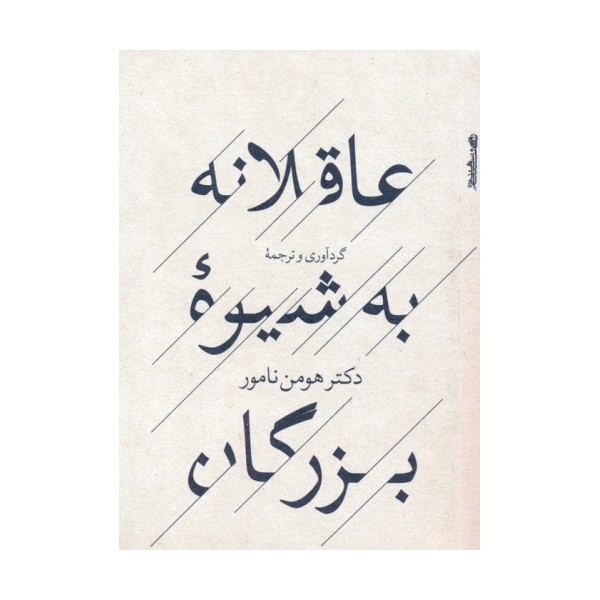 عاقلانه
گردآوری و ترجمهٔ
به شیوهٔ
دکتر هومن نامور
بزرگان